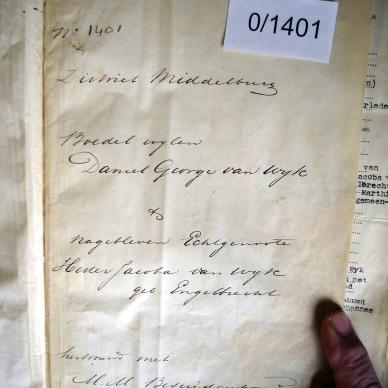 0/1401
No. 1401
District Middelburg
Boedel wylen
Daniel George van Wyk
&
nagebleven Echtgenoote
Hester Jacoba van Wyk
geb Engelbrecht
hertrouwd met
M. M. Bezuidenhout
8
van
acoba v
brech
Marthi
gemeen-
Wyk
met